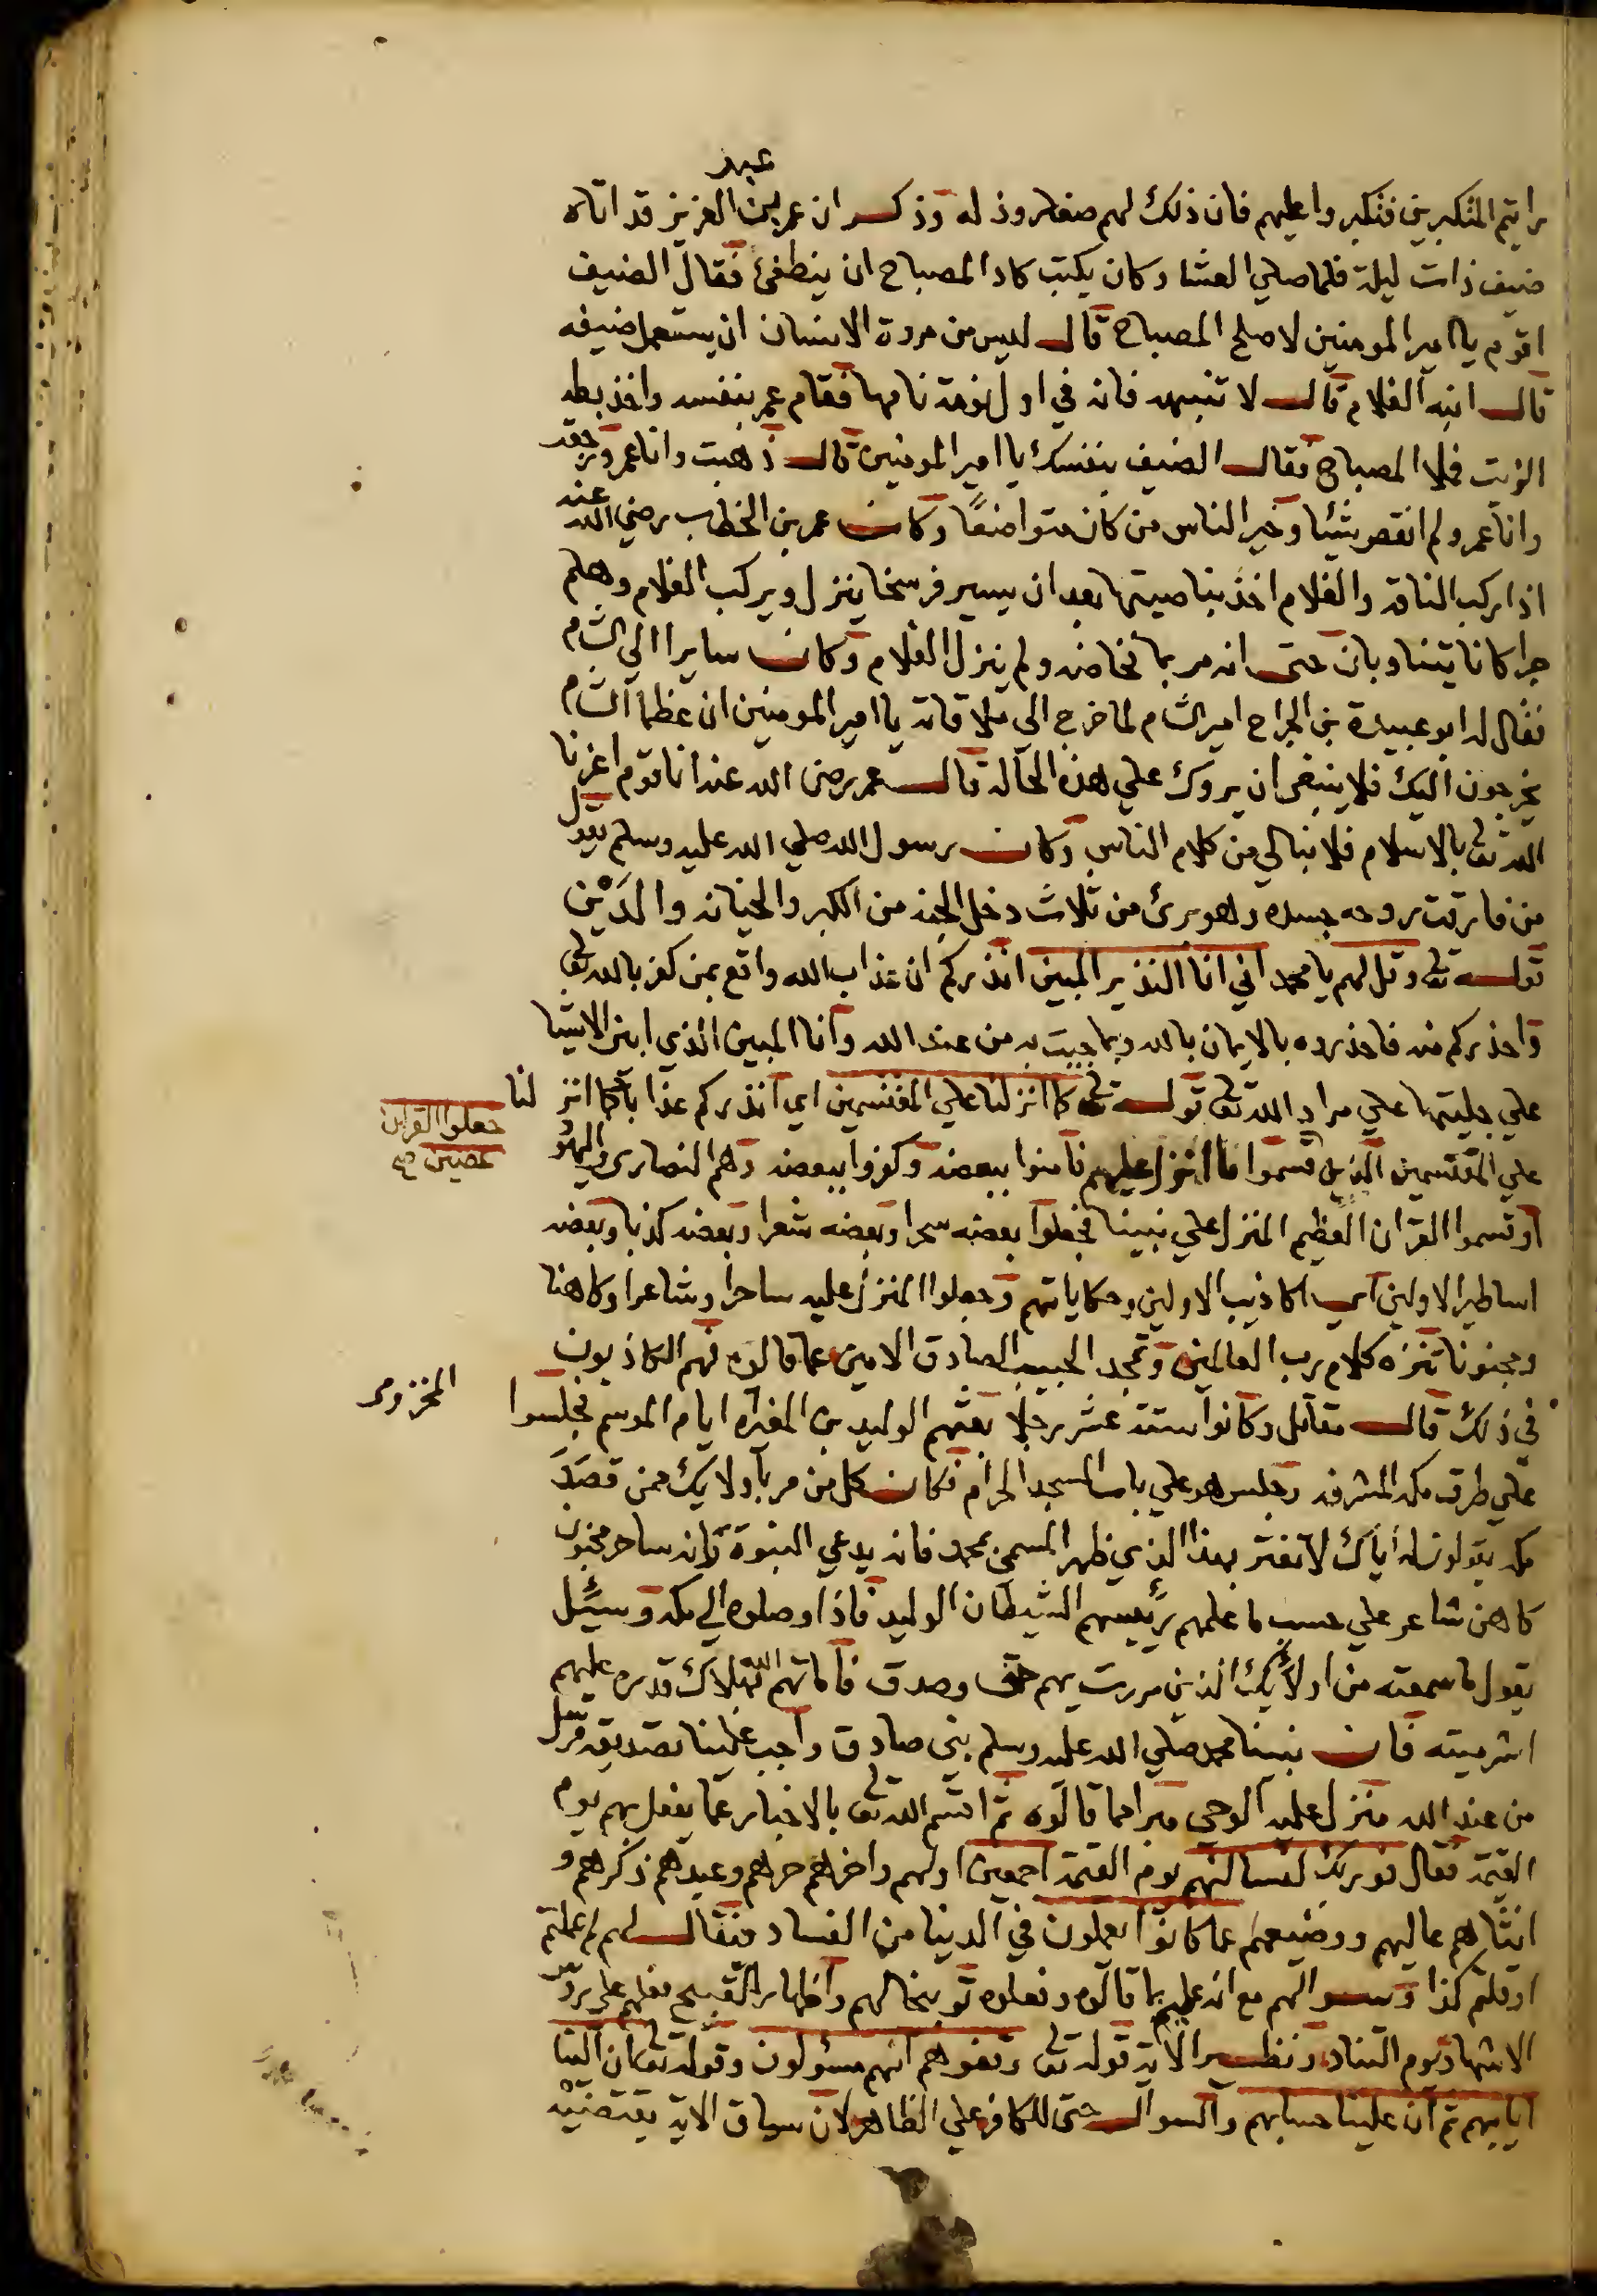 عبد
رايتم المتكبرين فتكبروا عليهم فان ذلك لهم صغار وذله وذكر ان عمر بن العزيز قد اتاه
ضيف ذات ليلة فلما صلي العشا وكان يكتب كاد المصباح ان ينطفئ فقال الضيف
اقوم يا امير المومنين لاصلح المصباح قال ليس من مروة الانسان ان يستعمل ضيفه
قال انبه الغلام قال لا تنبهه فانه في اول نومة نامها فقام عمر بنفسه واخذ بطه
الزيت فملا المصباح فقال الضيف بنفسك يا امير المومنين قال ذهبت وانا عمر ورجعت
وانا عمر ولم انقص شيئا وخير الناس من كان متواضعًا وكان عمر بن الخطاب رضي الله عنه
اذا ركب الناقه والغلام اخذ بناصيتها بعد ان يسير فرسخا ينزل ويركب الغلام وهلم
جرا كانا يتناوبان حتى انه مر بما مخاضه ولم ينزل الغلام وكان سايرا الي الشام
فقال له ابو عبيدة بن الجراح امير الشام لما خرج الي ملاقاته يا امير المومنين ان عظما الشام
يخرجون اليك فلا ينبغي ان يروك علي هذه الحاله قال عمر رضي الله عنه انا قوم اعزنا
الله تعالى بالاسلام فلا نبالي من كلام الناس وكان رسول الله صلي الله عليه وسلم يقول
من فارقت روحه جسده وهو برئ من ثلاث دخل الجنه من الكبر والخيانه والدَيْن
قوله تعالى وقل لهم يا محمد اني انا النذير المبين انذركم ان عذاب الله واقع بمن كفر بالله تعالى
واحذركم منه فاحذروه بالايمان بالله وبما جيت به من عند الله وانا المبين الذي ابين الاشيا
علي جليتها علي مراد الله تعالى قوله تعالى كما انزلنا علي المقتسمين اي انذركم عذابا كما انزلنا
علي المقتسمين الذين قسموا ما انزل عليهم فامنوا ببعضه وكفروا ببعضه وهم النصارى واليهود
جعلوا القران
عضين صح
او قسموا القران العظيم المنزل علي نبينا فجعلوا بعضه سحرا وبعضه شعرا وبعضه كذبا وبعضه
اساطير الاولين اي اكاذيب الاولين وحكاياتهم وجعلوا المنزل عليه ساحرا وشاعرا وكاهنا
ومجنونا تنزه كلام رب العالمين وتمجد الحبيب الصادق الامين عما قالوه فهم الكاذبون
في ذلك قال مقاتل وكانوا ستة عشر رجلا بعثهم الوليد بن المغيره ايام الموسم فجلسوا
المخزومي
علي طرق مكه المشرفه وجلس هو علي باب المسجد الحرام فكان كل من مر باولايك ممن قصَدَ
مكه يقولون له اياك لا تغتر بهذا الذي ظهر المسمى بمحمد فانه يدعي النبوة فانه ساحر مجنون
كاهن شاعر علي حسب ما علمهم رئيسهم الشيطان الوليد فاذا وصلوه الي مكه وسئل
يقول ما سمعته من اولائك الذين مررت بهم حق وصدق فاماتهم الله تعالى شر
اشر ميته فان نبينا محمد صلي الله عليه وسلم نبي صادق واجب علينا تصديقه مرسل
من عند الله منزل عليه الوحي مبرا مما قالوه ثم اقسم الله تعالى بالاخبار عما يفعل بهم يوم
القيمة فقال فوربك لنسالنهم يوم القيمة اجمعين اولهم واخرهم حرهم وعبدهم ذكرهم و
انثاهم عاليهم ووضيعهم عما كانوا يعملون في الدنيا من الفساد فيقال لهم لم عملتم
او قلتم كذا وسوالهم مع انه عليم بما قالوه وفعلوه توبيخا لهم واظهار القبيح فعلهم علي روس
الاشهاد يوم التناد ونظير الاية قوله تعالى وقفوهم انهم مسؤلون وقوله تعالى ان الينا
ايابهم ثم ان علينا حسابهم والسوال حتى للكافر علي الظاهر لان سياق الاية يقتضيه